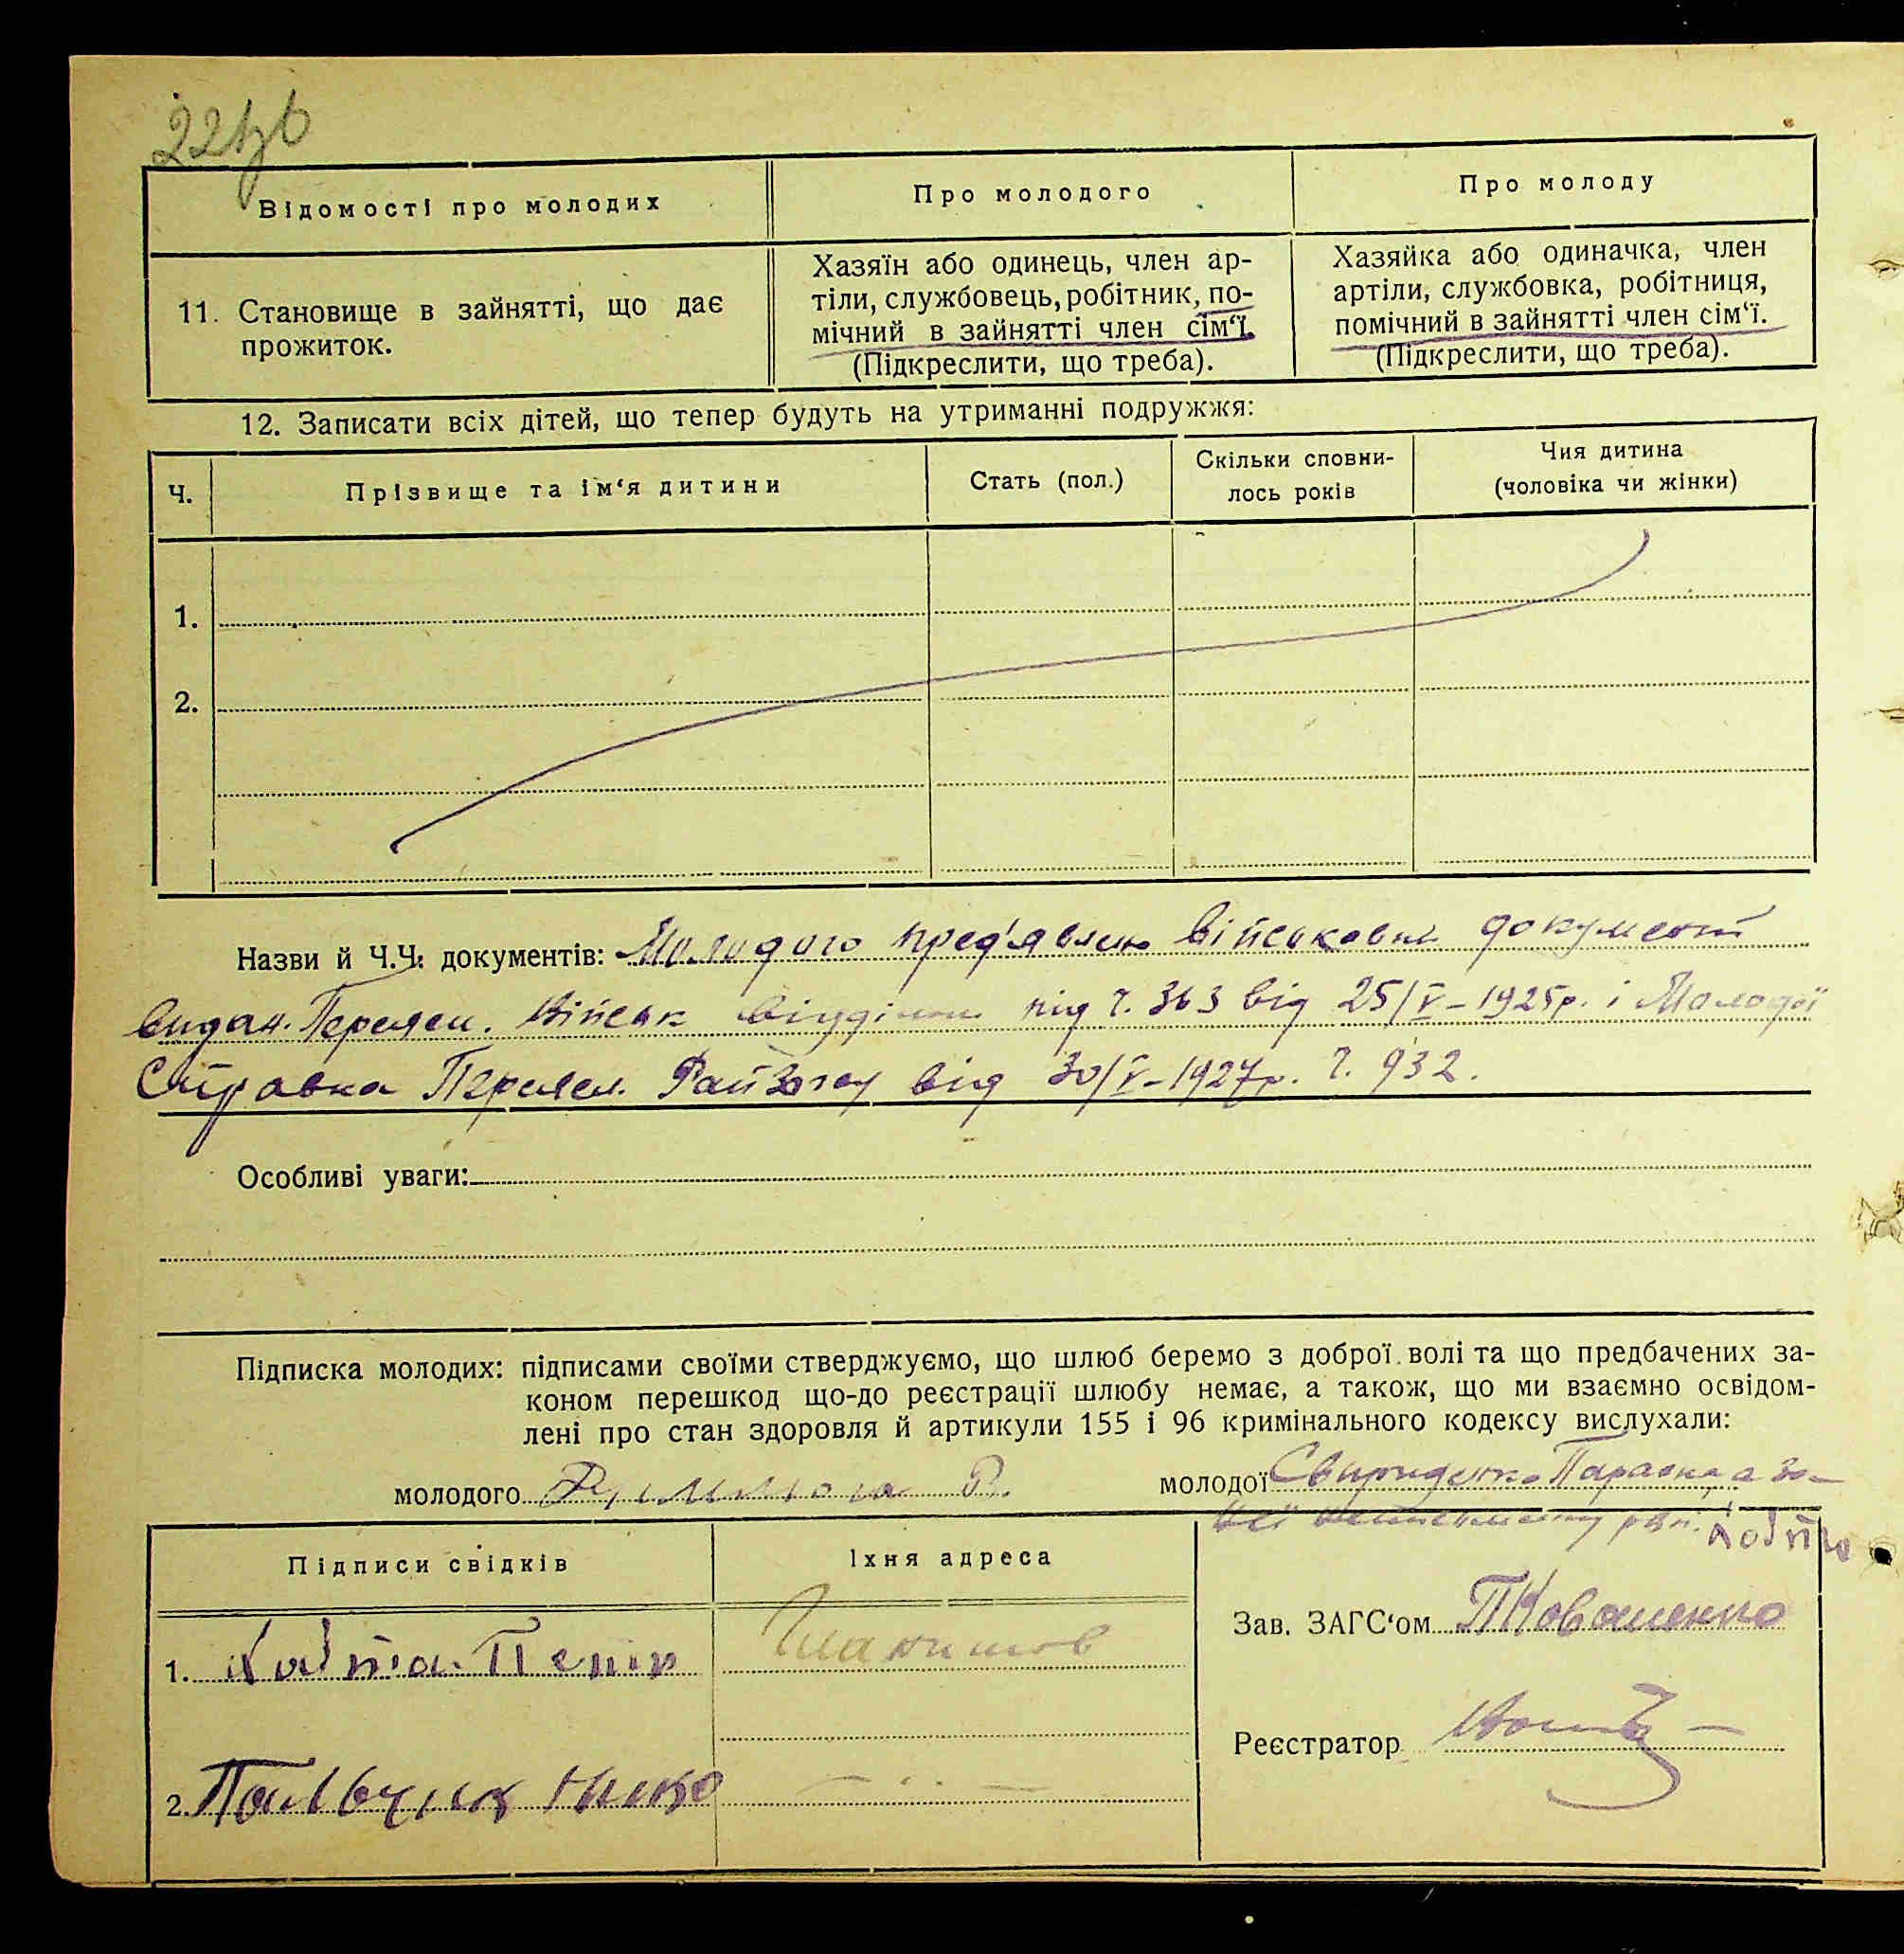 22зв
Відомості про молодих
Про молодого
Про молоду
11. Становище в зайнятті, що дає
прожиток.
Хазяїн або одинець, член ар-
тіли, службовець, робітник, по-
мічний в зайнятті член сім‘ї.
(Підкреслити, що треба).
Хазяйка або одиначка, член
артіли, службовка, робітниця,
помічний в зайнятті член сім‘ї.
(Підкреслити, що треба).
12. Записати всіх дітей, що тепер будуть на утриманні подружжя:
Ч.
Прізвище та ім‘я дитини
Стать (пол.)
Скільки сповни-
лось років
Чия дитина
(чоловіка чи жінки)
1.
2.
Назви й Ч.Ч. документів: Молодого пред'явлено військовий документ
видан. Переяел. Військ відділом під ч. 363 від 25/V–1925р. і Молодої
Справка Переяел. Рай від 30/V–1927р. ч. 932.
Особливі уваги:
Підписка молодих: підписами своїми стверджуємо, що шлюб беремо з доброї волі та що предбачених за-
коном перешкод що-до реєстрації шлюбу немає, а також, що ми взаємно освідом-
лені про стан здоровля й артикули 155 і 96 кримінального кодексу вислухали:
молодого
молодої Свириденко Параска, а за
неї неписьменну
Підписи свідків
Їхня адреса
1. Петро
2. Пальчик
Зав. ЗАГС‘ом П Коваленко
Реєстратор